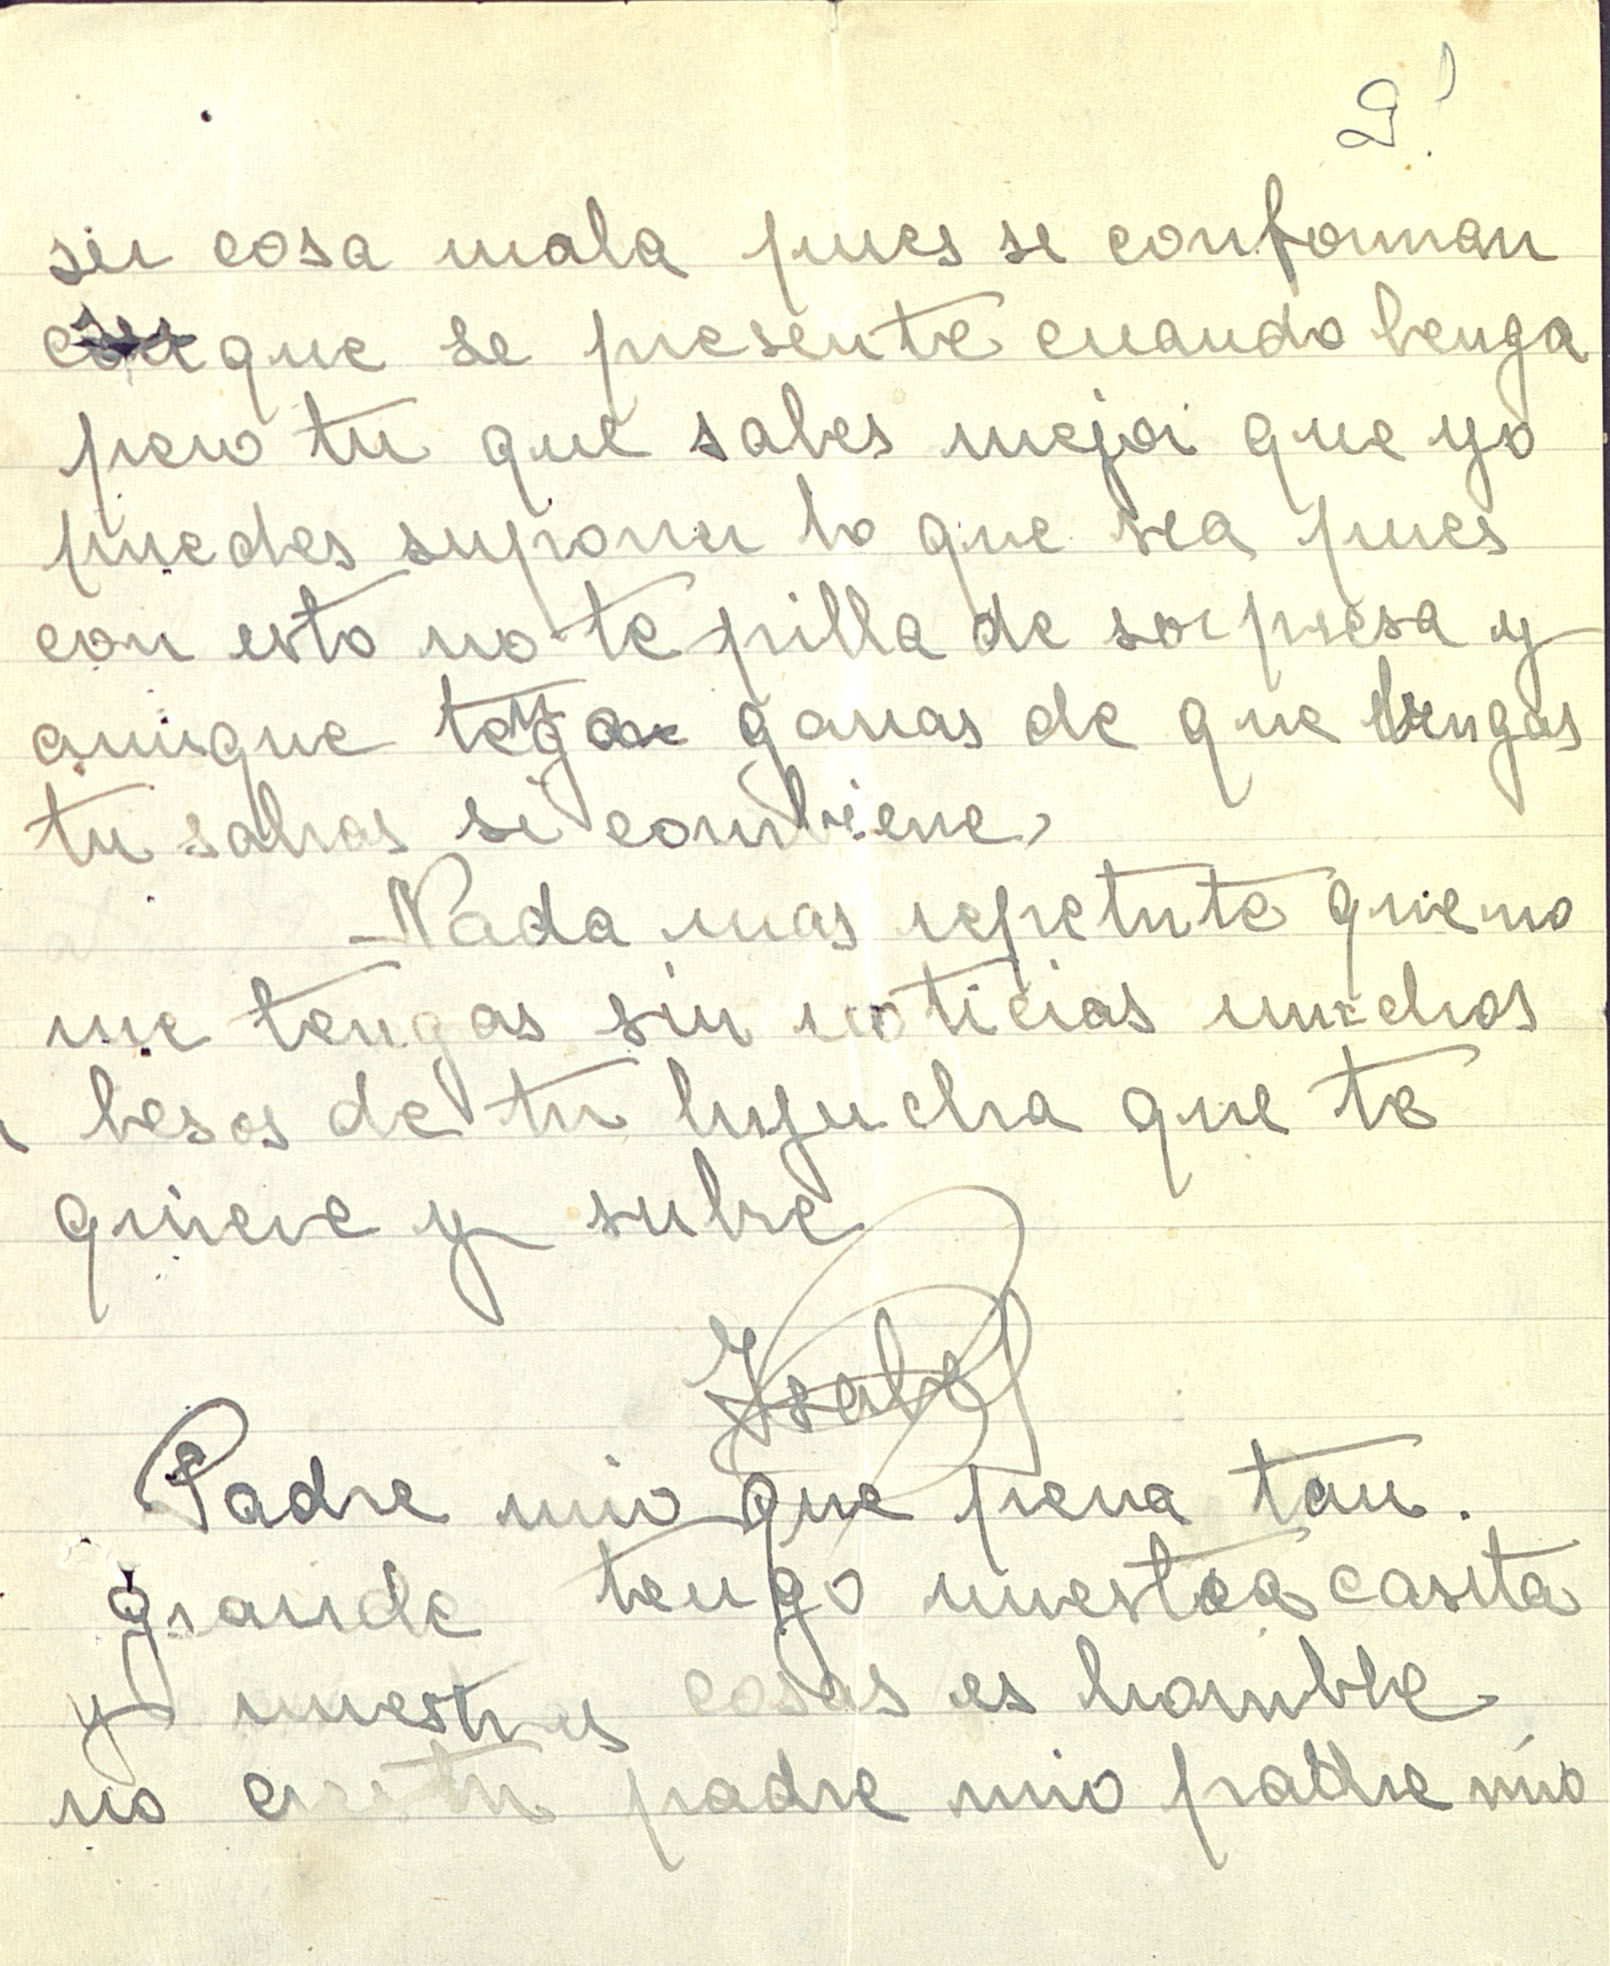 2!
ser cosa mala pues se conforman
con que se presente cuando benga
pero tu que sabes mejor que yo
puedes suponer lo que sea pues
con esto no te pilla de sorpresa y
aunque tenga ganas de que bengas
tu sabras si conbiene,
Nada mas repetirte que no
me tengas sin noticias muchos
besos de tu hijucha que te
quiere y subre
Isabel
Padre mio que pena tan.
grande tengo nuestra casita
y nuestras cosas es horrible
no padre mio padre mío